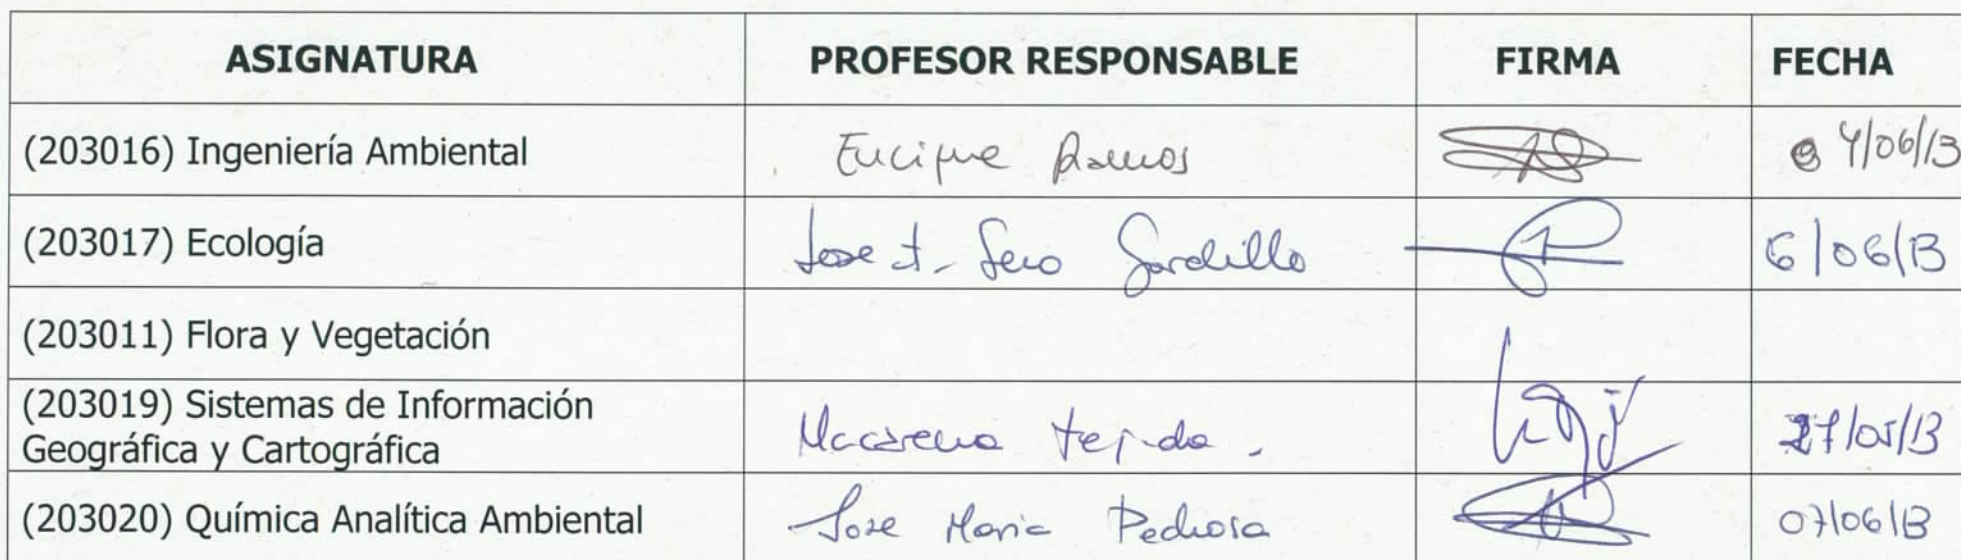 ASIGNATURA PROFESOR RESPONSABLE FIRMA FECHA
(203016) Ingeniería Ambiental Enrique Ramos 4/06/13
(203017) Ecología Jose 6/06/13
(203011) Flora y Vegetación
(203019) Sistemas de Información
Geográfica y Cartográfica Macarena Tejada 27/05/13
(203020) Química Analítica Ambiental Jose Maria Pedrosa 07/06/13